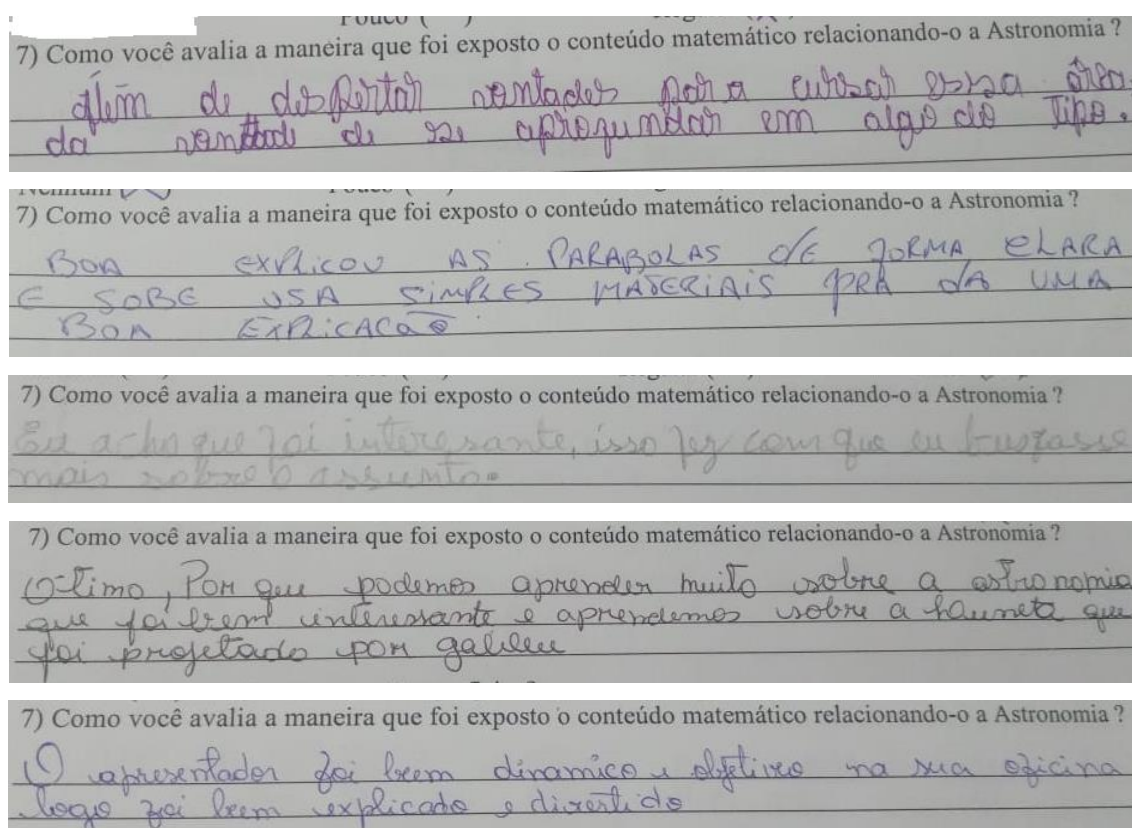 Pouco ( )
7) Como você avalia a maneira que foi exposto o conteúdo matemático relacionando-o a Astronomia ?
Além de despertar vontades para cursar essa área.
da vontade de se aprofundar em algo do Tipo.
Nenhum Pouco ( )
7) Como você avalia a maneira que foi exposto o conteúdo matemático relacionando-o a Astronomia ?
BOA EXPLICOU AS PARABOLAS DE FORMA CLARA
E SOBE USA SIMPLES MATERIAIS PRA DA UMA
BOA EXPLICAÇÃO
7) Como você avalia a maneira que foi exposto o conteúdo matemático relacionando-o a Astronomia ?
Eu acho que foi interesante, isso fez com que eu buscasse
mais sobre o assunto.
7) Como você avalia a maneira que foi exposto o conteúdo matemático relacionando-o a Astronomia ?
Otimo, Por que podemos aprender muito sobre a astronomia
que foi bem interessante e aprendemos sobre a que
foi projetado por galileu
7) Como você avalia a maneira que foi exposto o conteúdo matemático relacionando-o a Astronomia ?
O apresentador foi bem dinamico e objetivo na sua oficina
logo foi bem explicado e divertido